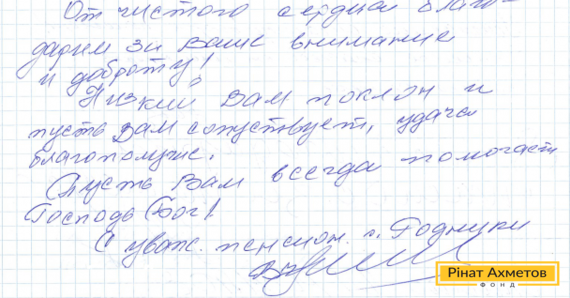 От чистого сердца благо-
дарим за Ваше внимание
и доброту!
Низкий Вам поклон и
пусть Вам сопутствует, удача
благополучие.
Пусть Вам всегда помогает
Господь Бог!
С уваж. пенсион. г. Родники
Рінат Ахметов
ФОНД